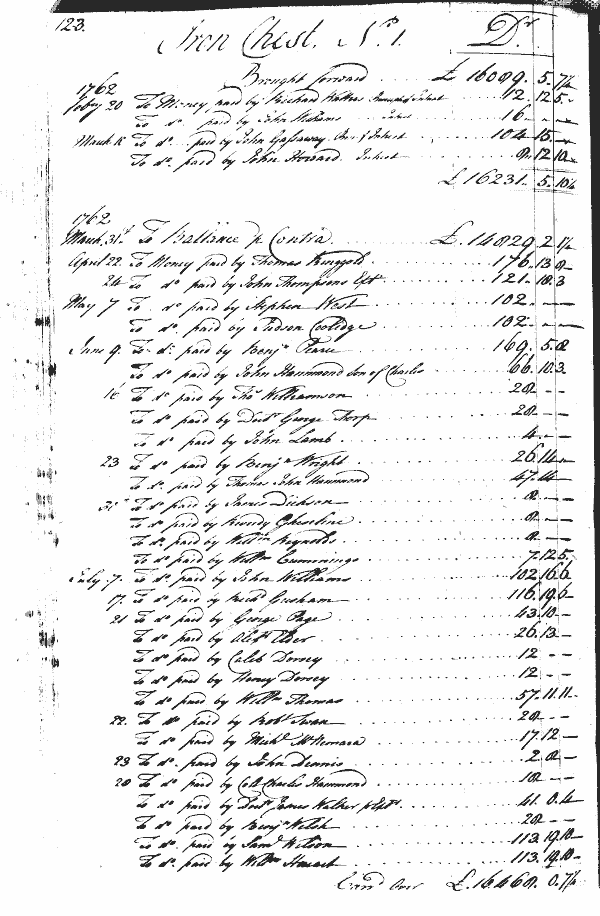 123.
Iron Chest. No. 1. Dr.
Brought forward £ 16089. 5. 7½
1762
Febry 20 To Money paid by Richard Watkins Interest 12. 12. 5.
To do. paid by John Interest 16. — —
March To do. paid by John Gassaway Interest 104. 15. —
To do. paid by John Howard Interest 8. 12. 10
£ 16231. 5. 10½
1762
March 31st To Ballance pr Contra £. 14829. 2. 1½
April 22 To Money paid by Thomas Ringgold 176. 13. 8
24 To do. paid by John Thompsons 121. 18. 3
May 7 To do. paid by Stephen West 102. — —
To do. paid by Judson Coolidge 102. — —
June 9. To do. paid by Benja. Pearce 169. 5. 8
To do. paid by John Hammond Son of Charles 66. 10. 3
16 To do. paid by Thos. Williamson 28 — —
To do. paid by Doctr. George Thorp 28 — —
To do. paid by John Lamb 4. — —
23 To do. paid by Benja. Wright 26. 14. —
To do. paid by Thomas John Hammond 47. 14
30 To do. paid by James Dickson 8. — —
To do. paid by Ghiselin 8. — —
To do. paid by Willm. Reynolds 8. — —
To do. paid by Willm. Cummings 7. 12. 5.
July 7. To do. paid by John Williams 102. 16. 6
17. To do. paid by Richd. Gresham 116. 19. 6
21 To do. paid by George Page 43. 10 —
To do. paid by Alexr. Elder 26. 13. —
To do. paid by Caleb Dorsey 12 — —
To do. paid by Henry Dorsey 12 — —
To do. paid by Willm. Thomas 57. 11. 11.
22. To do. paid by Robt. Swan 28 — —
To do. paid by Michl. McNemara 17. 12 —
23 To do. paid by John Dennis 2. 8. —
28 To do. paid by Coll. Charles Hammond 18 — —
To do. paid by Doctr. James Walker 41. 0. 4
To do. paid by Benja. Welsh 28 — —
To do. paid by Saml. Wilson 113. 19. 10
To do. paid by Willm. Stewart 113. 19. 10
Carrd. Over £. 16468. 0. 7¼